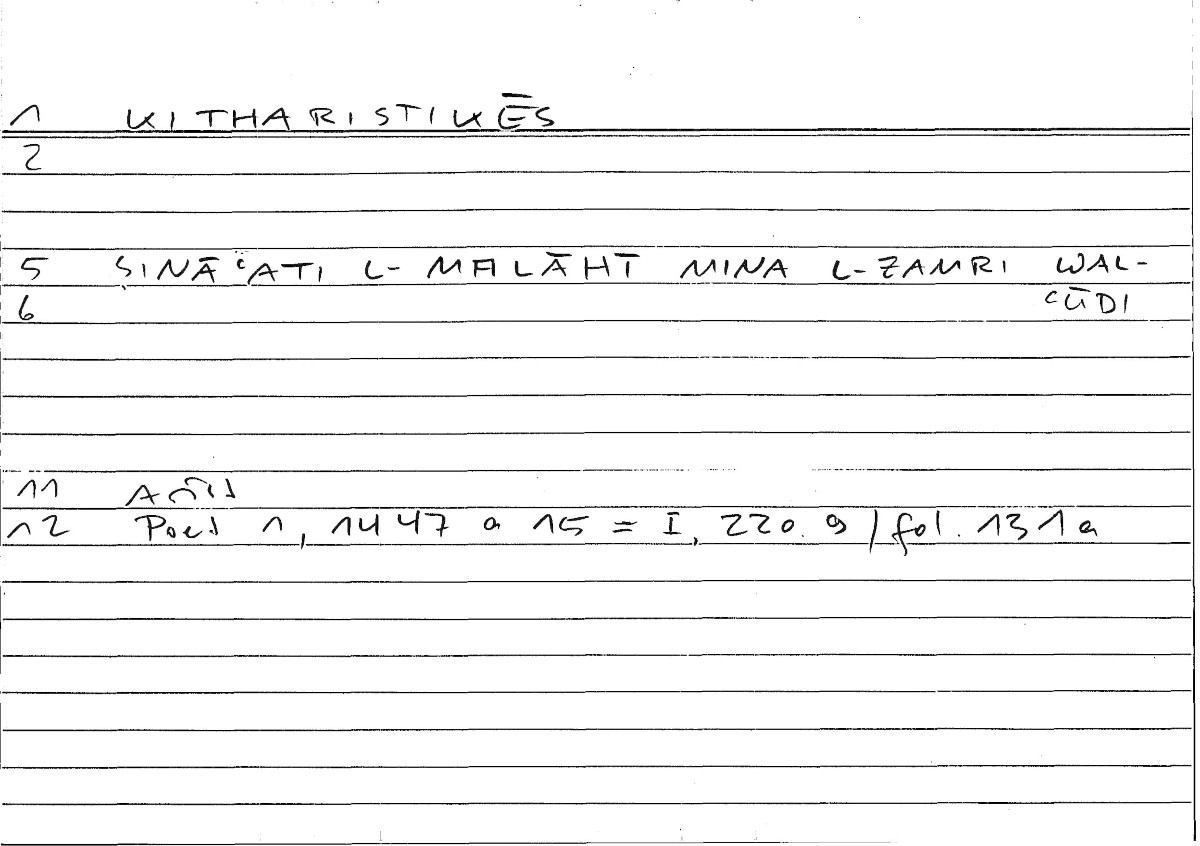 1 KITHARISTIKĒS
2
5 ṢINĀʿATI L-MALĀHĪ MINA L-ZAMRI WAL-
6 ʿŪDI
11 Arist
12 Poet 1, 1447 a 15 = I, 220.9 / fol. 131a